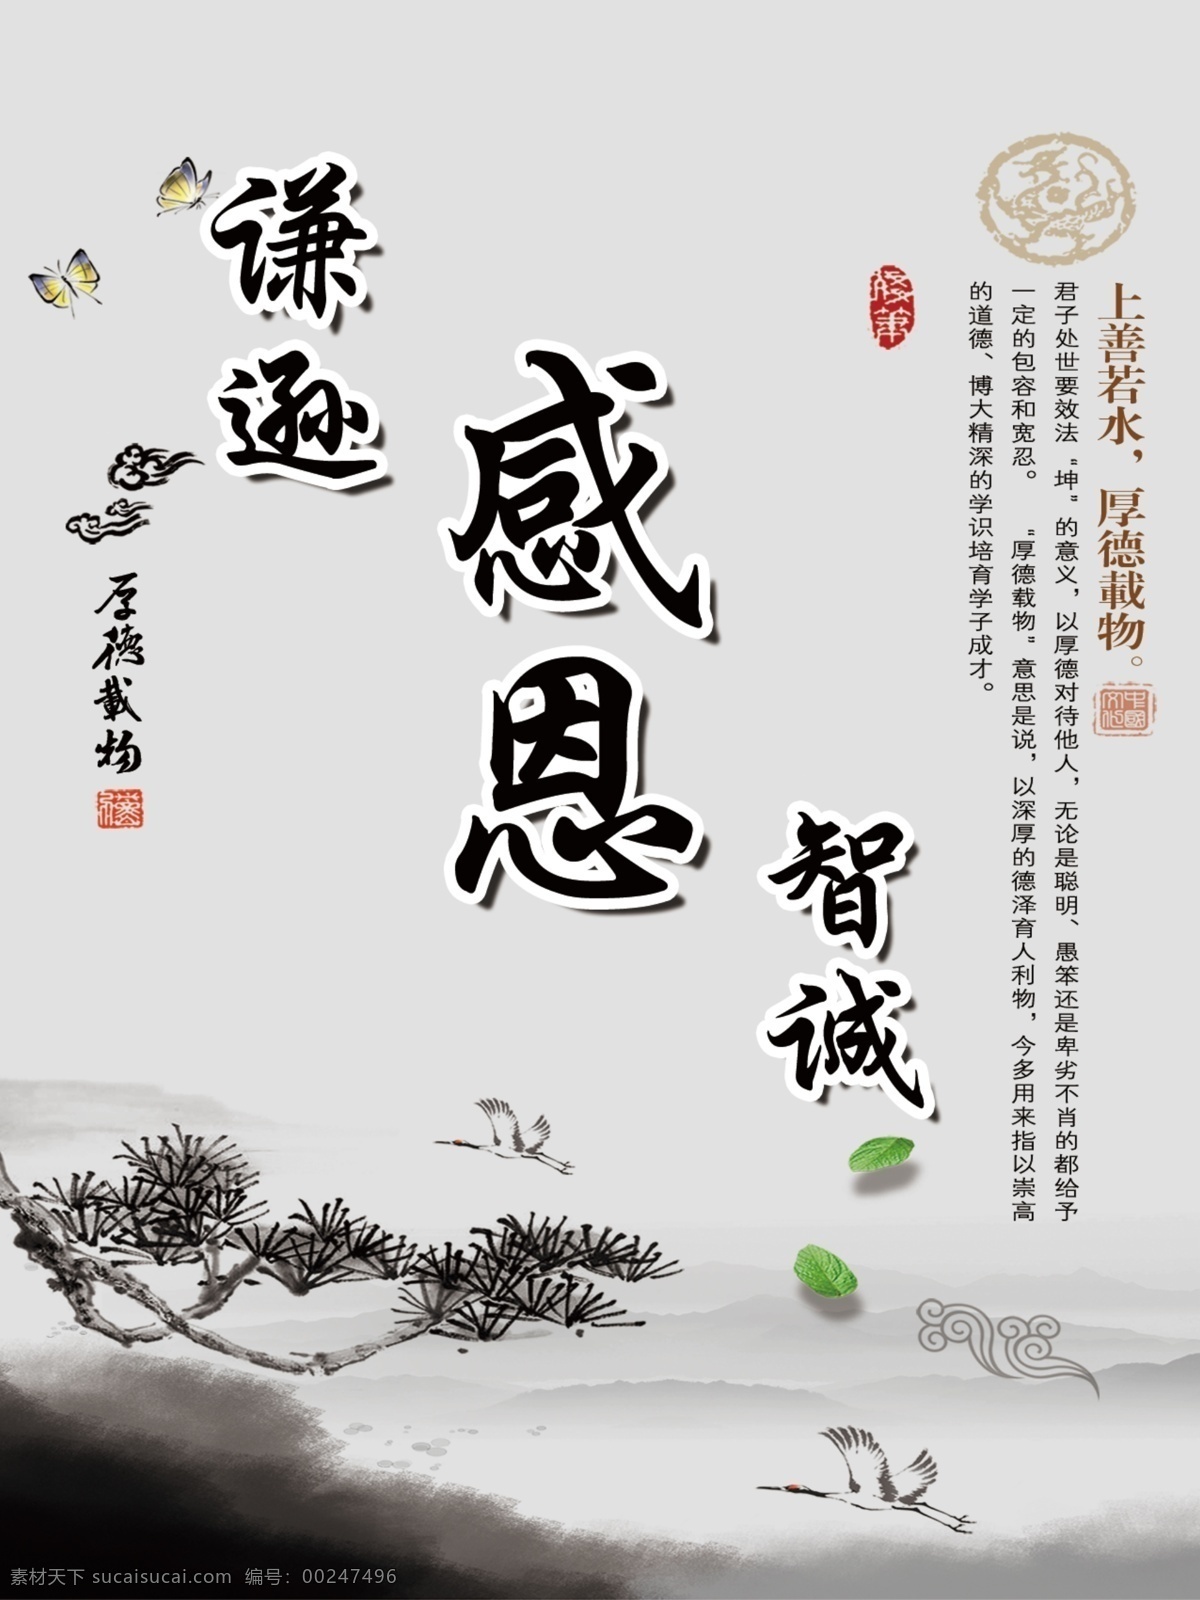 上善若水，厚德載物。
中國文化
君子处世要效法“坤”的意义，以厚德对待他人，无论是聪明、愚笨还是卑劣不肖的都给予
一定的包容和宽忍。 “厚德载物”意思是说，以深厚的德泽育人利物，今多用来指以崇高
的道德、博大精深的学识培育学子成才。
智诚
感恩
谦逊
厚德載物
素材天下 sucaisucai.com 编号：00247496